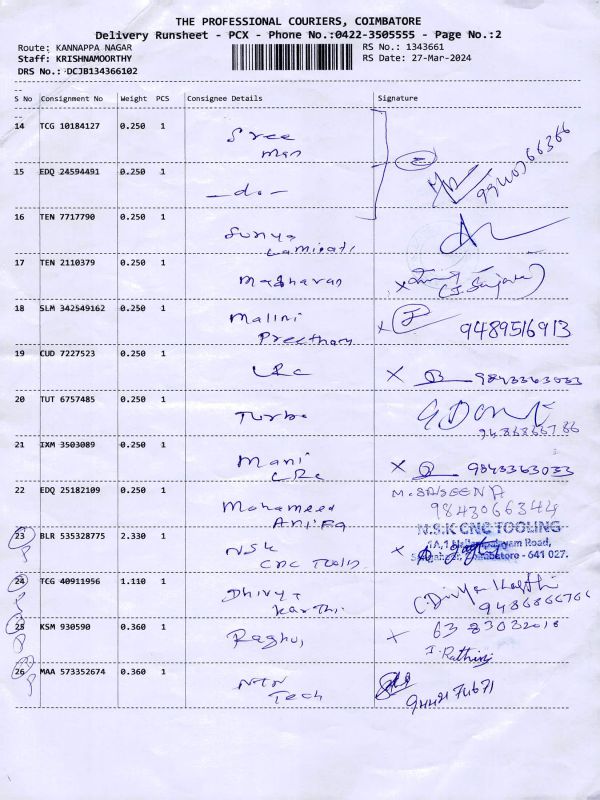 THE PROFESSIONAL COURIERS, COIMBATORE
Delivery Runsheet - PCX - Phone No.:0422-3505555 - Page No.:2
Route: KANNAPPA NAGAR RS No.: 1343661
Staff: KRISHNAMOORTHY RS Date: 27-Mar-2024
DRS No.: DCJB134366102
S No Consignment No Weight PCS Consignee Details Signature
14 TCG 10184127 0.250 1 Sree
man
15 EDQ 24594491 0.250 1 -do-
16 TEN 7717790 0.250 1 Surya
17 TEN 2110379 0.250 1 Madhavan
18 SLM 342549162 0.250 1 Malini
Preetham 9489516913
19 CUD 7227523 0.250 1 LRC X 9843363033
20 TUT 6757485 0.250 1 Turbo
21 IXM 3503089 0.250 1 Mani X 9843363033
LRC
22 EDQ 25182109 0.250 1 Mohameed 9843066344
N.S.K CNC TOOLING
23 BLR 535328775 2.330 1 NSK Road,
CNC Tools Coimbatore - 641 027.
24 TCG 40911956 1.110 1 Dhivya C. Divya Karthi
Karthi.
25 KSM 930590 0.360 1 Raghu, X
26 MAA 573352674 0.360 1 NTN
Tech